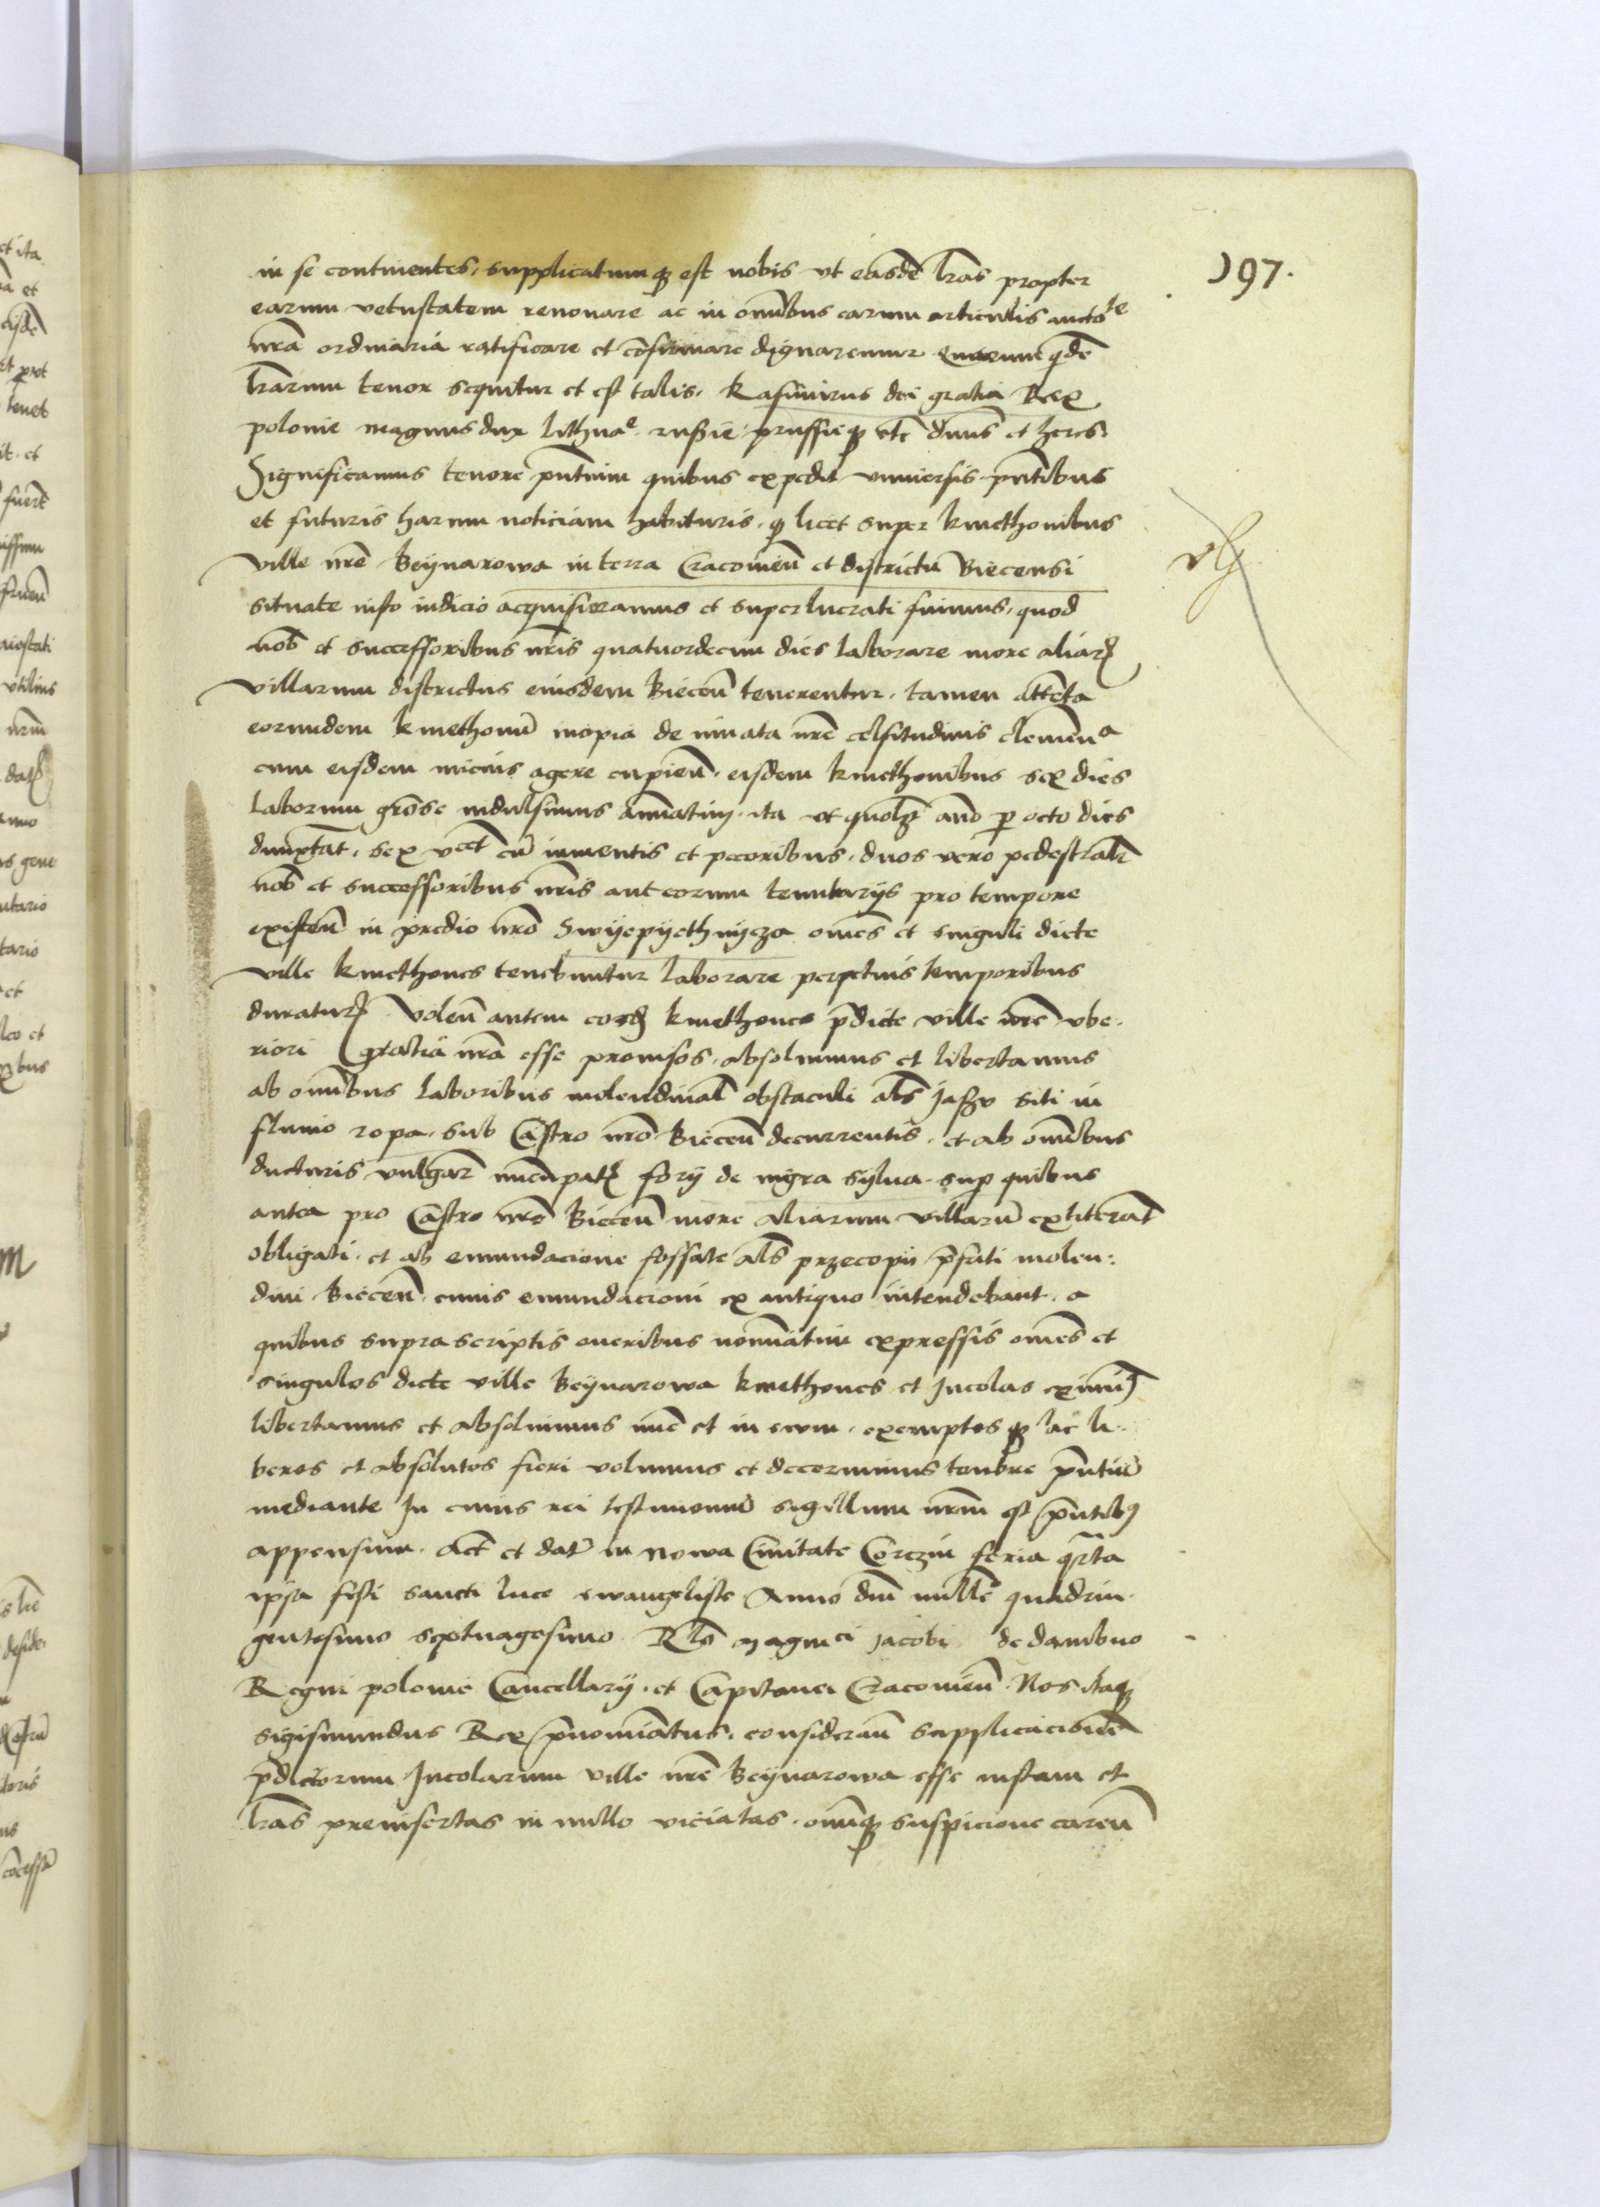 197.
in se continentes, supplicatumq₃ est nobis vt easdē lr̄as propter
earum vetustatem renouare ac in om̄ibus earum articulis aucto^te
nr̄a ordinaria ratificare et cōfirmare dignaremur quarum q̄dē
lr̄arum tenor sequitur et est talis. Kasimirus dei gratia Rex
polonie magnus dux lithua^e russie prussieq₃ etc̄ dn̄us et heres.
Significamus tenore pn̄tium quibus expedit vniuersis pn̄tibus
et futuris harum noticiam habituris, q₃ licet super kmethonibus
ville nr̄e Beynarowa in terra Cracouien̄ et districtu Biecensi
situate iusto iudicio acquisieramus et superlucrati fuimus, quod
nob̄ et successoribus nr̄is quatuordecim dies laborare more aliar̄
villarum districtus eiusdem Biecen̄ tenerentur. tamen attēta
eorundem kmethonū inopia de innata nr̄e celsitudinis clemen^a
cum eisdem micius agere cupien̄. eisdem kmethonibus sex dies
laborum grōse indulsimus annuatim. ita vt quol₃ ann̄o p̄ octo dies
dumtaxat. sex v^cet cū iumentis et pecoribus. duos vero pedestral̄r
nob̄ et successoribus nr̄is aut eorum tenutarijs pro tempore
existen̄ in predio nr̄o Swyepyethnycza omēs et singuli dicte
ville kmethones tenebuntur laborare perpetuis temporibus
duratur̄. Volen̄ autem eosd̄ kmethones p̄dicte ville nr̄e vbe-
riori gratia nr̄a esse prouisos. absoluimus et libertamus
ab om̄ibus laboribus molendinal̄ obstaculi al̄s jaszv siti in
fluuio ropa. sub Castro nr̄o Biecen̄ decurrentis. et ab om̄ibus
ducturis vulgar̄ nūcupat̄ fory de nigra sylua. sup̄ quibus
antea pro Castro nr̄o Biecen̄ more aliarum villarū extiterant
obligati. et ab emundacione fossate al̄s przecopii p̄fati molen:
dini Biecen̄. cuius emundacioni ex antiquo intendebant. a
quibus suprascriptis oneribus nominatim expressis omēs et
singulos dicte ville Beynarowa kmethones et Incolas eximim̄
libertamus et absoluimus nūc et in ewm. exemptosq₃ ac li-
beros et absolutos fieri volumus et decernimus tenore pn̄tiū
mediante In cuius rei testimoniū sigillum nr̄um est pn̄tib9
appensum. Act̄ et dat̄ in Nowa Ciuitate Corczin feria q̄rta
ipsa festi sancti luce ewangeliste Anno dni̅ mill̄e quadrin-
gentesimo septuagesimo Rl̄o magni^ci Jacobi de dambno
Regni polonie Cancellarij. et Capitanei Cracouien̄. Nos itaq₃
Sigismundus Rex p̄nominatus. consideran̄ supplicacionē
p̄dictorum Incolarum ville nr̄e Beynarowa esse iustam et
lr̄as preinsertas in nullo viciatas. om̄iq₃ suspicione caren̄